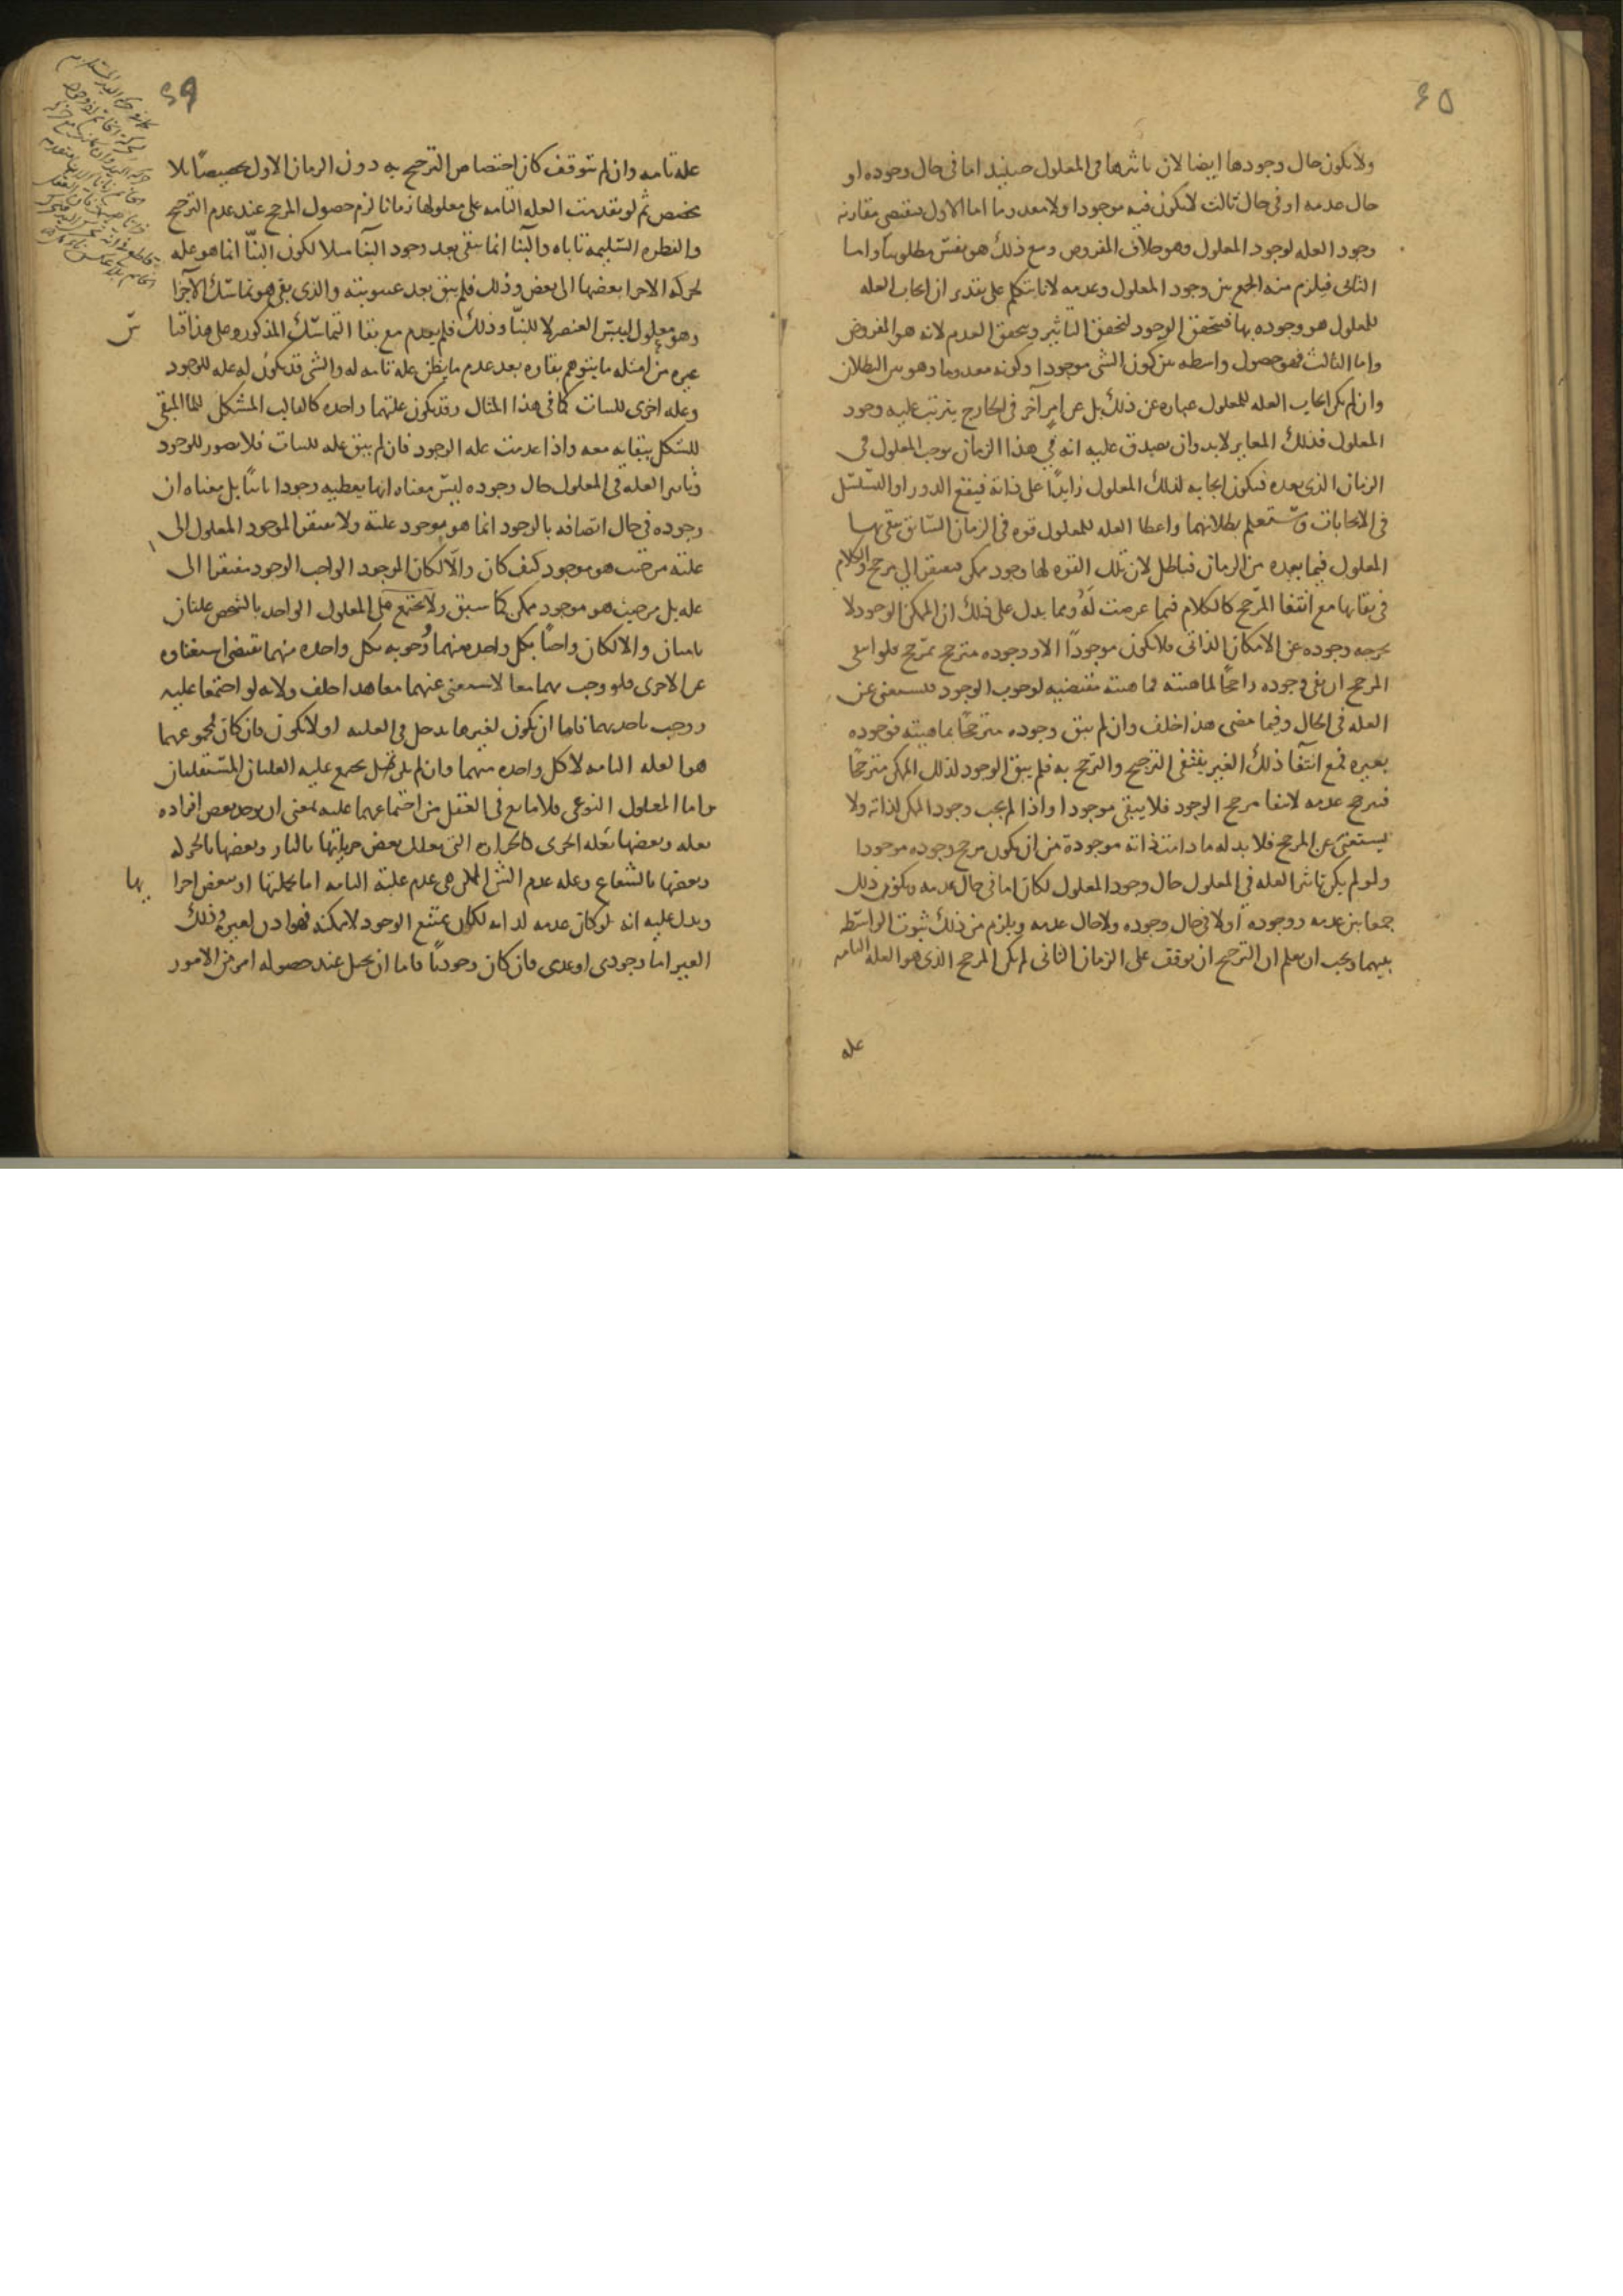 ٤٥
ولا يكون حال وجودها ايضا لان تاثيرها فى المعلول حينيذ اما فى حال وجوده او
حال عدمه او فى حال ثالث لا يكون فيه موجودا ولا معدوما اما الاول فيقتضي مقارنه
وجود العله لوجود المعلول وهو خلاف المفروض ومع ذلك هو نفس مطلوبنا واما
الثانى فيلزم منه الجمع بين وجود المعلول وعدمه لانا نتكلم على تقدير ان ايجاب العله
للمعلول هو وجوده بها فيتحقق الوجود لتحقق التاثير ويتحقق العدم لانه هو المفروض
واما الثالث فهو حصول واسطه بين كون الشى موجودا وكونه معدوما وهو بين البطلان
وان لم يكن ايجاب العله للمعلول عباره عن ذلك بل عن امر آخر فى الخارج يترتب عليه وجود
المعلول فذلك المغاير لا بد وان يصدق عليه انه فى هذا الزمان يوجب المعلول فى
الزمان الذى بعده فيكون ايجابه لذلك المعلول زايدا على ذاته فيقع الدور او التسلسل
فى الايجابات وستعلم بطلانهما واعطا العله للمعلول قوه فى الزمان السابق يبقى بها
المعلول فيما بعده من الزمان فباطل لان تلك القوه لها وجود ممكن فيفتقر الى مرجح والكلام
فى بقائها مع انتفا المرجح كالكلام فيما عرضت له ومما يدل على ذلك ان الممكن الوجود لا
يخرجه وجوده عن الامكان الذاتى فلا يكون موجودا الا ووجوده مترجح بمرجح فلو انتفى
المرجح ان بقى وجوده راجحا لماهيته فماهيته مقتضيه لوجوب الوجود فيستغنى عن
العله فى الحال وفيما مضى هذا خلف وان لم يبق وجوده مترجحا بماهيته فوجوده
بغيره فمع انتفا ذلك الغير ينتفى الترجيح والترجح به فلم يبق الوجود لذلك الممكن مترجحا
فيترجح عدمه لانتفا مرجح الوجود فلا يبقى موجودا واذا لم يجب وجود الممكن لذاته ولا
يستغنى عن المرجح فلا بد له ما دامت ذاته موجودة من ان يكون مرجح وجوده موجودا
ولو لم يكن تاثير العله فى المعلول حال وجود المعلول لكان اما فى حال عدمه ويكون ذلك
جمعا بين عدمه ووجوده او لا فى حال وجوده ولا حال عدمه ويلزم من ذلك ثبوت الواسطه
بينهما ويجب ان يعلم ان الترجح ان توقف على الزمان الثانى لم يكن المرجح الذى هو العله التامه
عله
٤٩
عله تامه وان لم يتوقف كان اختصاص الترجح به دون الزمان الاول تخصيصا بلا
مخصص ثم لو تقدمت العله التامه على معلولها زمانا لزم حصول المرجح عند عدم الترجح
والفطره السليمه تاباه والبنا انما يبقى بعد وجود البنا مثلا لكون البنا انما هو عله
لحركه الاجزا بعضها الى بعض وذلك فلم يبق بعد والذى بقى هو تماسك الاجزا
وهو معلول ليبس العنصر لا للبنا وذلك فلم يعدم مع بقا التماسك المذكور وعلى هذا قيا
س
غيره من امثله ما يتوهم بقاوه بعد عدم ما يظن عله تامه له والشى قد يكون له عله للوجود
وعله اخرى للثبات كما فى هذا المثال وقد يكون علتهما واحده كالقالب المشكل للما المبقى
للشكل ببقايه معه واذا عدمت عله الوجود فان لم يبق عله للثبات فلا تصور للوجود
وتاثير العله فى المعلول حال وجوده ليس معناه انها يعطيه وجودا ثانيا بل معناه ان
وجوده فى حال اتصافه بالوجود انما هو بوجود علته ولا يفتقر الموجود المعلول الى
علته من حيث هو موجود كيف كان والا لكان الموجود الواجب الوجود مفتقرا الى
عله بل من حيث هو موجود ممكن كما سبق ولا يجتمع على المعلول الواحد بالشخص علتان
تامتان والا لكان واجبا بكل واحده منهما ووجوبه بكل واحده منهما يقتضى استغناوه
عن الاخرى فلو وجب بهما معا لاستغنى عنهما معا هذا خلف ولانه لو اجتمعا عليه
ووجب باحديهما فاما ان يكون لغيرها مدخل فى العليه او لا يكون فان كان فمجموعهما
هو العله التامه لا كل واحده منهما وان لم يكن فلم يجتمع عليه العلتان المستقلتان
واما المعلول النوعى فلا مانع فى العقل من اجتماعهما عليه بمعنى ان يوجد بعض افراده
بعله وبعضها بعله اخرى كالحراره التى يعلل بعض جزياتها بالنار وبعضها بالحركه
وبعضها بالشعاع وعله عدم الشى الممكن هى عدم علته التامه اما بجملتها او ببعض اجزا
يها
ويدل عليه انه لو كان عدمه لذاته لكان ممتنع الوجود لا ممكنه فهو اذن لغيره وذلك
الغير اما وجودى او عدمى فان كان وجوديا فاما ان يختل عند حصوله امر من الامور